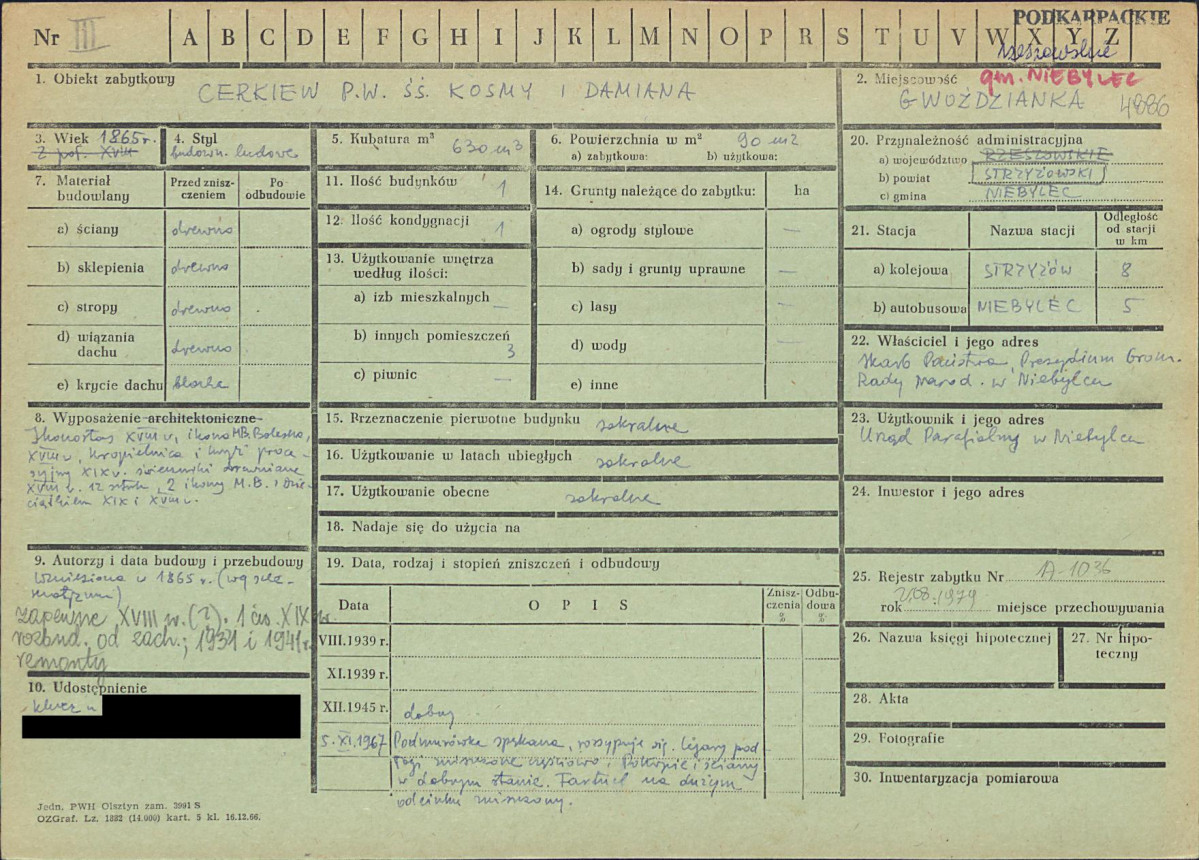 Nr III
A B C D E F G H I J K L M N O P R S T U V W X Y Z
PODKARPACKIE
rzeszowskie
1. Obiekt zabytkowy
CERKIEW P.W. ŚŚ. KOSMY I DAMIANA
2. Miejscowość gm. NIEBYLEC
GWOŹDZIANKA 4886
3. Wiek 1865 r.
z poł. XVIII
4. Styl
budown. ludowe
5. Kubatura m³ 630 m3
6. Powierzchnia w m² 90 m2
a) zabytkowa: b) użytkowa:
7. Materiał budowlany
Przed zniszczeniem
Po odbudowie
a) ściany drewno
b) sklepienia drewno
c) stropy drewno
d) wiązania dachu drewno
e) krycie dachu blacha
8. Wyposażenie architektoniczne
Ikonostas XVIII w, ikona M.B. Bolesna,
XVIII w, kropielnica i krzyż proce-
syjny XIX w. świeczniki drewniane
XVIII w. 12 sztuk, 2 ikony M.B. z Dzie-
ciątkiem XIX i XVIII w.
9. Autorzy i data budowy i przebudowy
Wzniesiona w 1865 r. (wg sze-
matyzmu)
zapewne XVIII w. (?). 1 ćw. XIX w
rozbud. od zach.; 1931 i 1941 r.
remonty
10. Udostępnienie
klucz u
11. Ilość budynków 1
12. Ilość kondygnacji 1
13. Użytkowanie wnętrza
według ilości:
a) izb mieszkalnych —
b) innych pomieszczeń
3
c) piwnic —
14. Grunty należące do zabytku: ha
a) ogrody stylowe —
b) sady i grunty uprawne —
c) lasy —
d) wody —
e) inne
15. Przeznaczenie pierwotne budynku sakralne
16. Użytkowanie w latach ubiegłych sakralne
17. Użytkowanie obecne sakralne
18. Nadaje się do użycia na
19. Data, rodzaj i stopień zniszczeń i odbudowy
Data
O P I S
Zniszczenia %
Odbudowa %
VIII.1939 r.
XI.1939 r.
XII.1945 r. dobry
5.XI.1967 Podmurówka spękana, rozsypuje się. Legary pod-
łogi zniszczone częściowo. Pokrycie i ściany
w dobrym stanie. Fartuch na dużym
odcinku zniszczony.
20. Przynależność administracyjna
a) województwo RZESZOWSKIE
b) powiat STRZYŻOWSKI
c) gmina NIEBYLEC
21. Stacja
Nazwa stacji
Odległość od stacji w km
a) kolejowa STRZYŻÓW 8
b) autobusowa NIEBYLEC 5
22. Właściciel i jego adres
Skarb Państwa, Prezydium Grom.
Rady Narod. w Niebylcu
23. Użytkownik i jego adres
Urząd Parafialny w Niebylcu
24. Inwestor i jego adres
25. Rejestr zabytku Nr A-1036
rok 21.08.1979 miejsce przechowywania
26. Nazwa księgi hipotecznej
27. Nr hipo-
teczny
28. Akta
29. Fotografie
30. Inwentaryzacja pomiarowa
Jedn. PWH Olsztyn zam. 3991 S
OZGraf. Lz. 1882 (14.000) kart. 5 kl. 16.12.66.